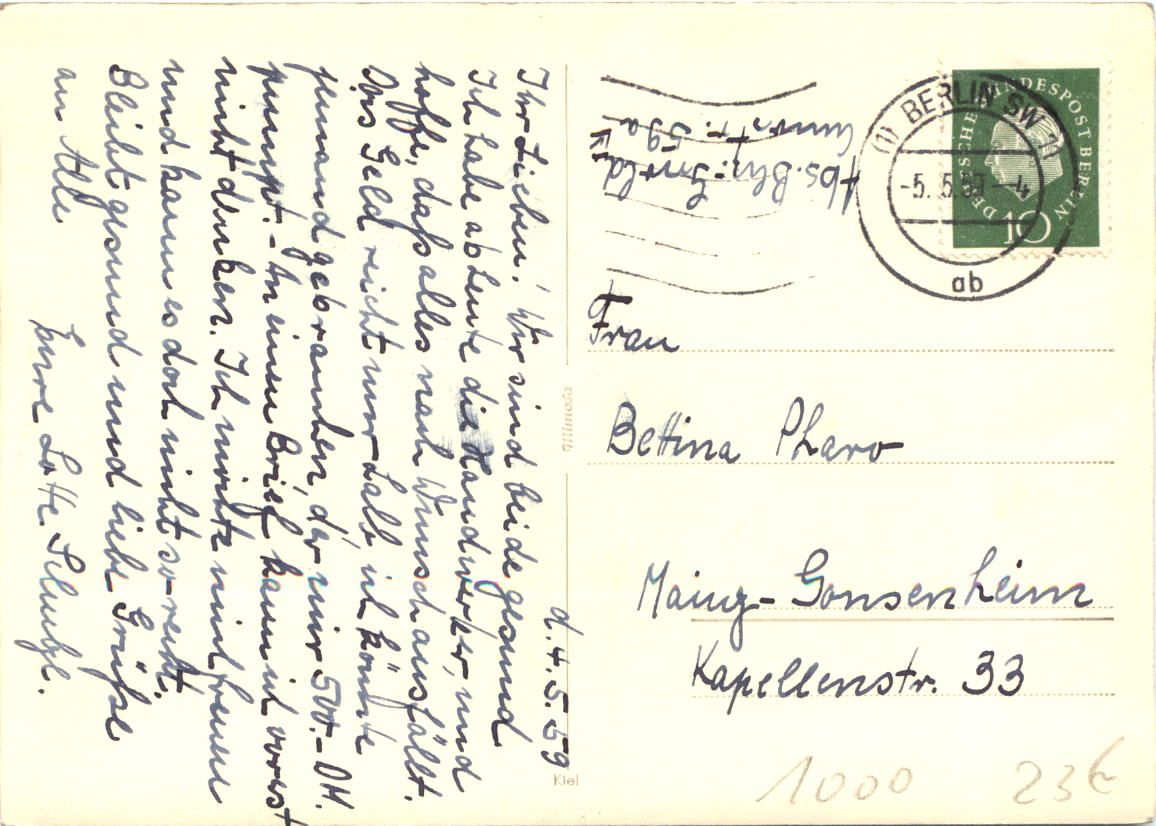 d. 4.5.59
Ihr Lieben! Wir sind beide gesund
Ich habe ab heute die Handwerker, und
hoffe, daß alles nach Wunsch ausfällt.
Das Geld reicht nur halb, ich könnte
jemand gebrauchen, der mir 500.- DM.
pumpt. - An einen Brief kann ich vorerst
nicht denken. Ich würde mich freuen
und kann es doch nicht so recht.
Bleibt gesund und liebe Grüße
an Alle
Eure Lotte
Abs. Bln.
Str. 59a
(1) BERLIN SW 11
-5.5.59-4
ab
DEUTSCHE BUNDESPOST BERLIN
10
Frau
Bettina Pharo
Mainz-Gonsenheim
Kapellenstr. 33
Mimosa
Kiel
1000 23€